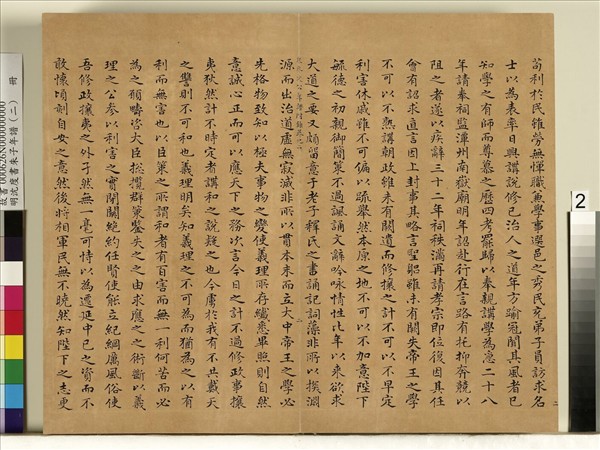 苟利於民雖勞無憚職兼學事選邑之秀民充弟子員訪求名
士以為表率日與講說修己治人之道年方踰冠聞其風者已
知學之有師而尊慕之歷四考罷歸以奉親講學為急二十八
年請奉祠監潭州南嶽廟明年詔赴行在言路有托抑奔競以
阻之者遂以疾辭三十二年祠秩滿再請孝宗即位復因其任
會有詔求直言因上封事其略言聖躬雖未有闕失帝王之學
不可以不熟講朝政雖未有闕遺而修攘之計不可以不早定
利害休戚雖不可徧以疏舉然本原之地不可以不加意陛下
毓德之初親御簡策不過諷誦文辭吟咏情性比年以來欲求
大道之要又頗留意于老子釋氏之書誦記詞藻非所以探淵
源而出治道虛無寂滅非所以貫本末而立大中帝王之學必
先格物致知以極夫事物之變使義理所存纖悉畢照則自然
意誠心正而可以應天下之務次言今日之計不過修政事攘
夷狄然計不時定者講和之說疑之也今虜於我有不共戴天
之讐則不可和也義理明矣知義理之不可為而猶為之以有
利而無害也以臣策之所謂和者有百害而無一利何苦而必
為之願疇咨大臣總攬群策鑒失之之由求應之之術斷以義
理之公參以利害之實閉關絕約任賢使能立紀綱厲風俗使
吾修政攘夷之外孑然無一毫可恃以為遷延中已之資而不
敢懷頃刻自安之意然後將相軍民無不曉然知陛下之志更
二
2
故書000826N000000000 冊
明沈度書朱子年譜(二)